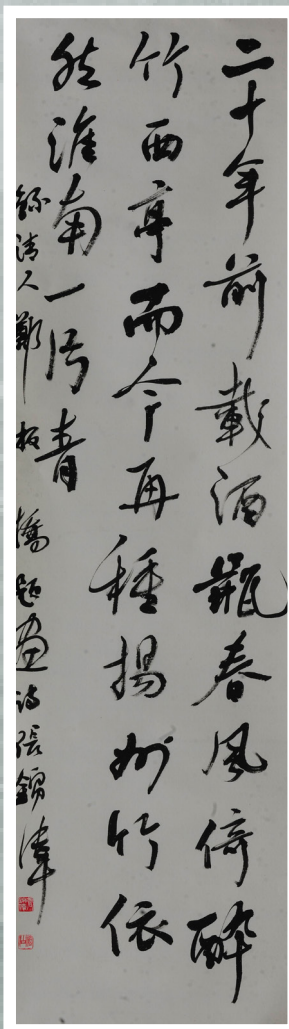 二十年前載酒瓶春風倚醉
竹西亭而今再種揚州竹依
然淮南一片青
錄清人鄭板橋題畫詩張錦津